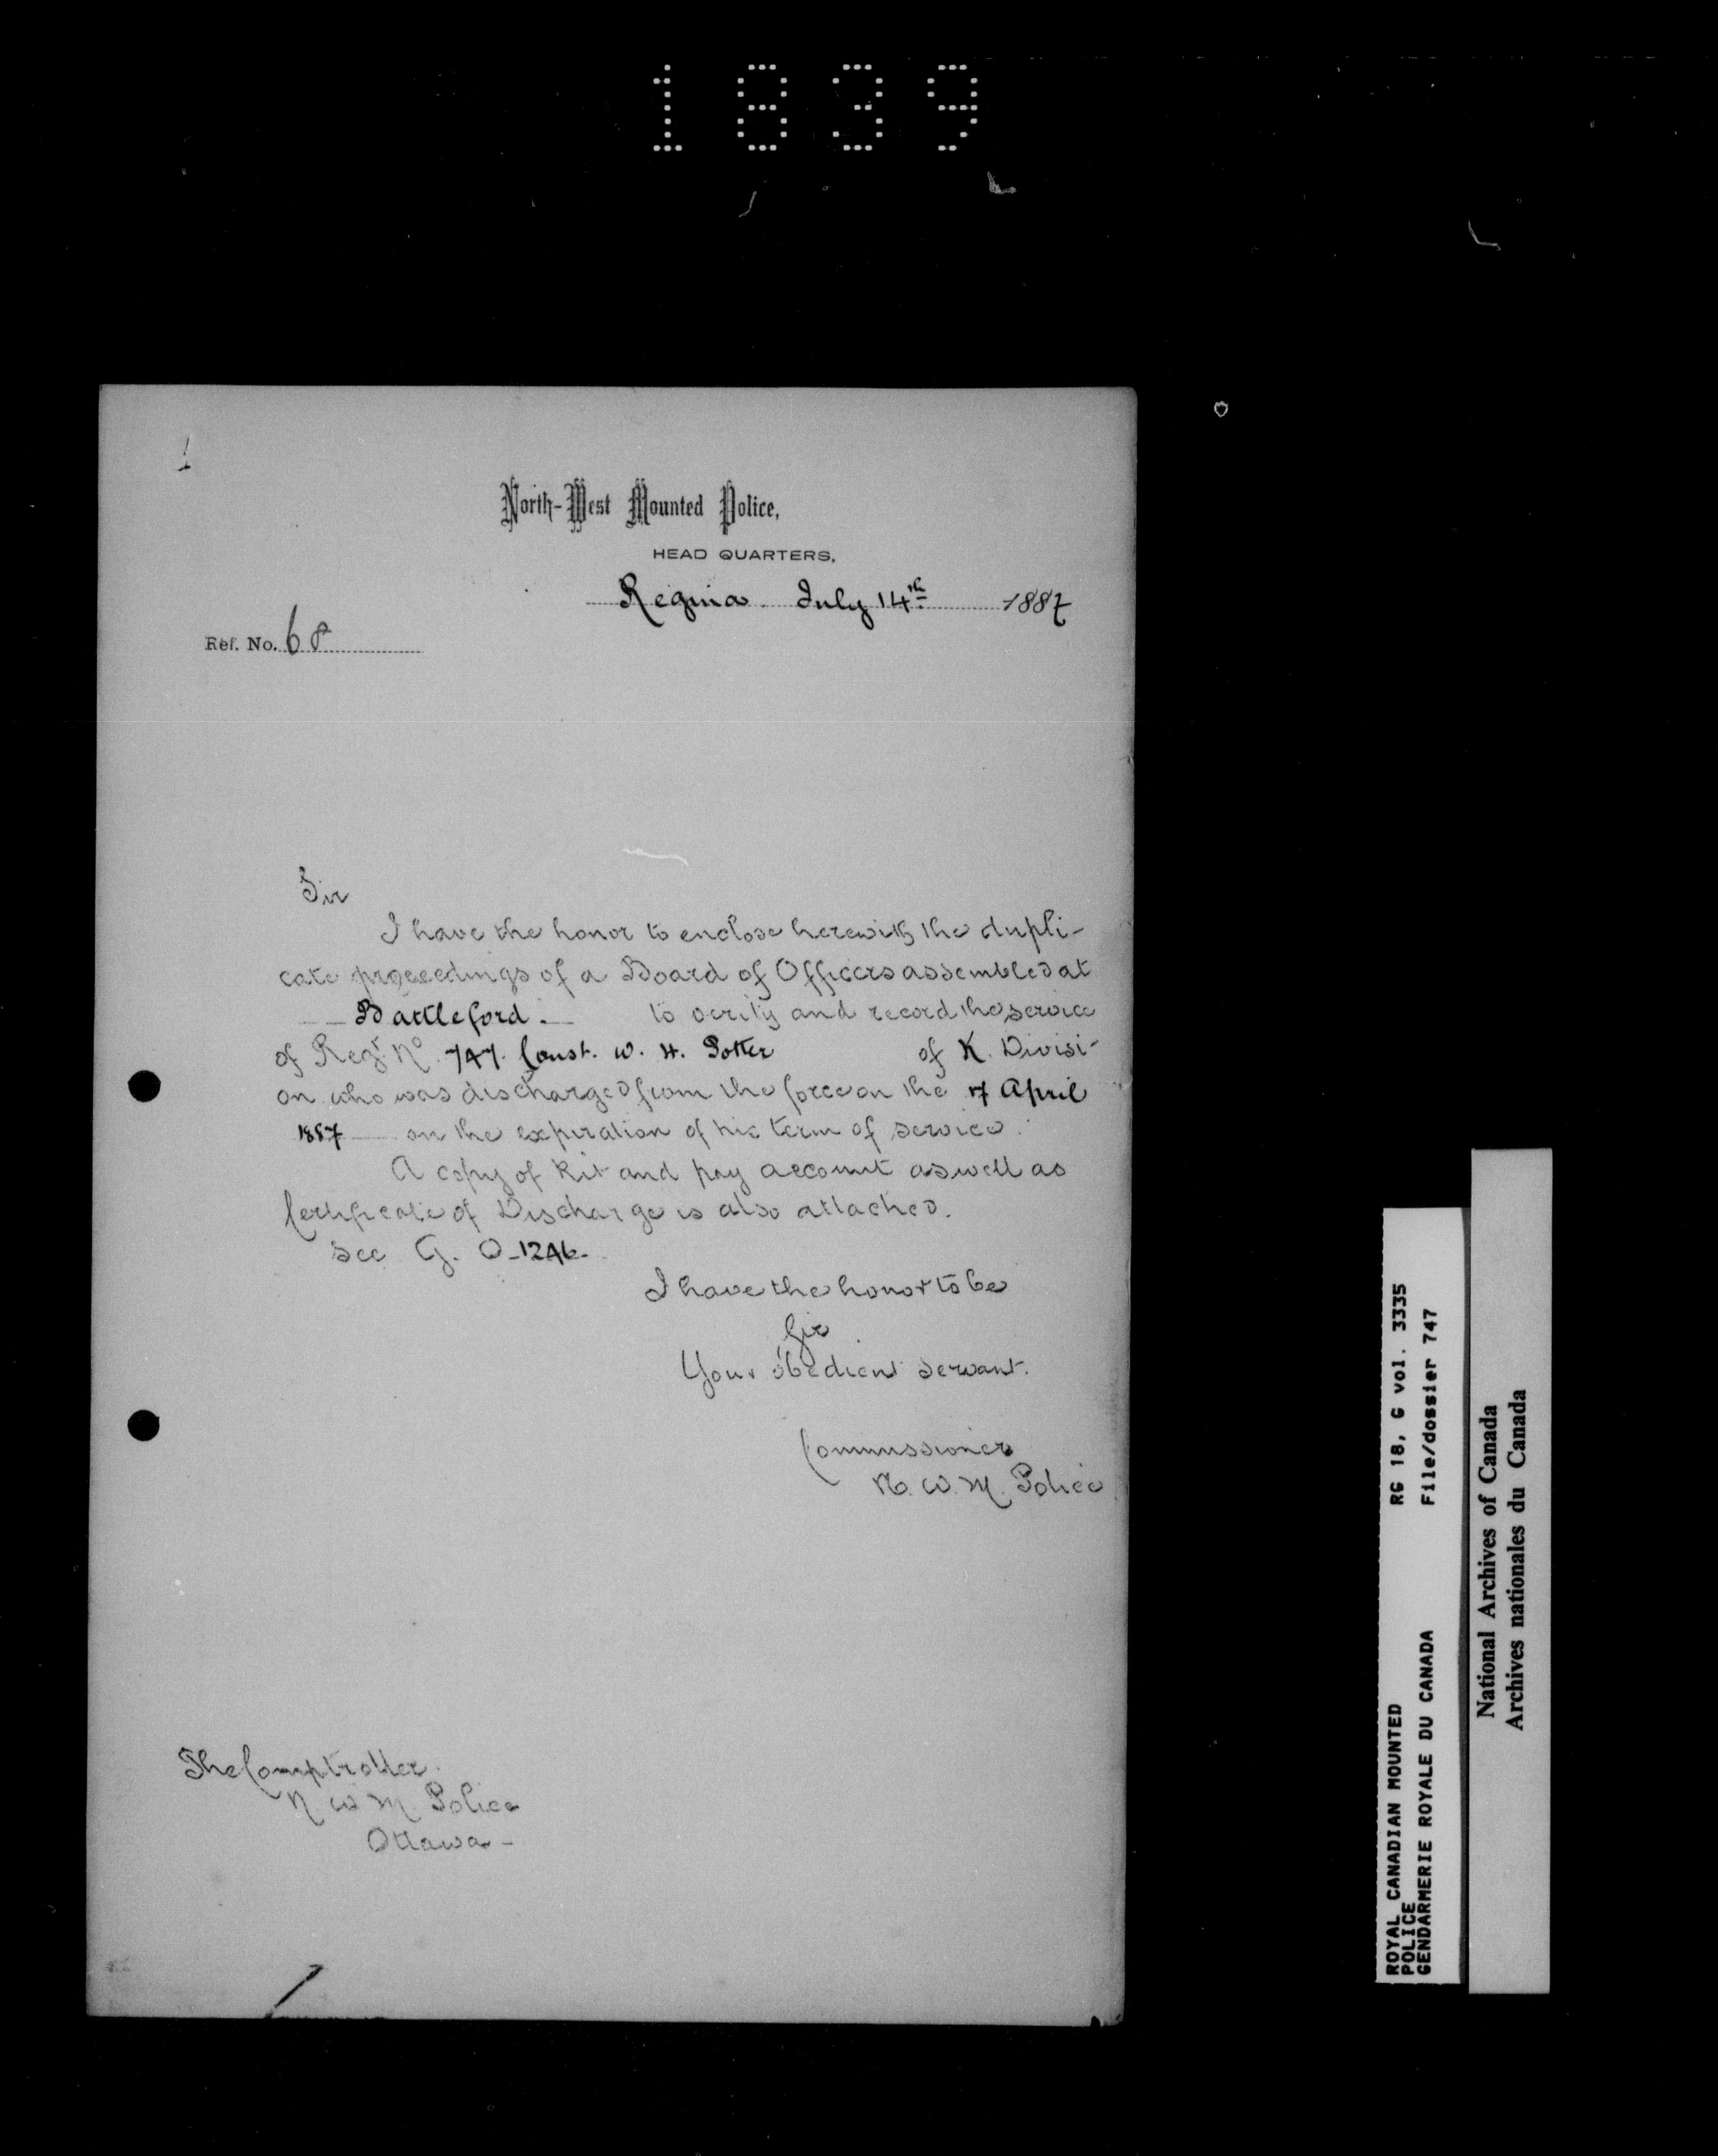 1839
North-West Mounted Police,
HEAD QUARTERS,
Regina July 14th 1887
Ref. No. 68
Sir
I have the honor to enclose herewith the dupli-
cate proceedings of a Board of Officers assembled at
Battleford. to verify and record the service
of Regt. No. 747. Const. W. H. Potter of K. Divisi-
on who was discharged from the force on the 17 April
1887 on the expiration of his term of service.
A copy of Kit and pay account as well as
Certificate of Discharge is also attached.
See G. O. 1246.
I have the honor to be
Sir
Your obedient servant.
Commissioner
N. W. M. Police
The Comptroller.
N W M. Police
Ottawa -
ROYAL CANADIAN MOUNTED RG 18, G vol. 3335
POLICE
GENDARMERIE ROYALE DU CANADA File/dossier 747
National Archives of Canada
Archives nationales du Canada